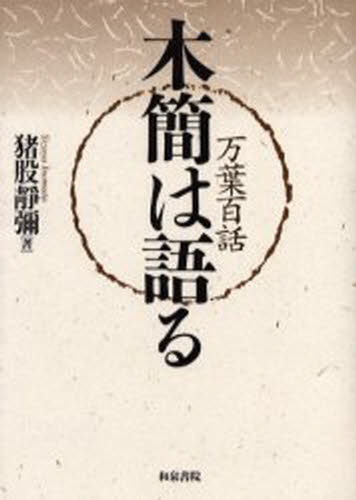 木簡は語る
万葉百話
猪股靜彌 著
和泉書院